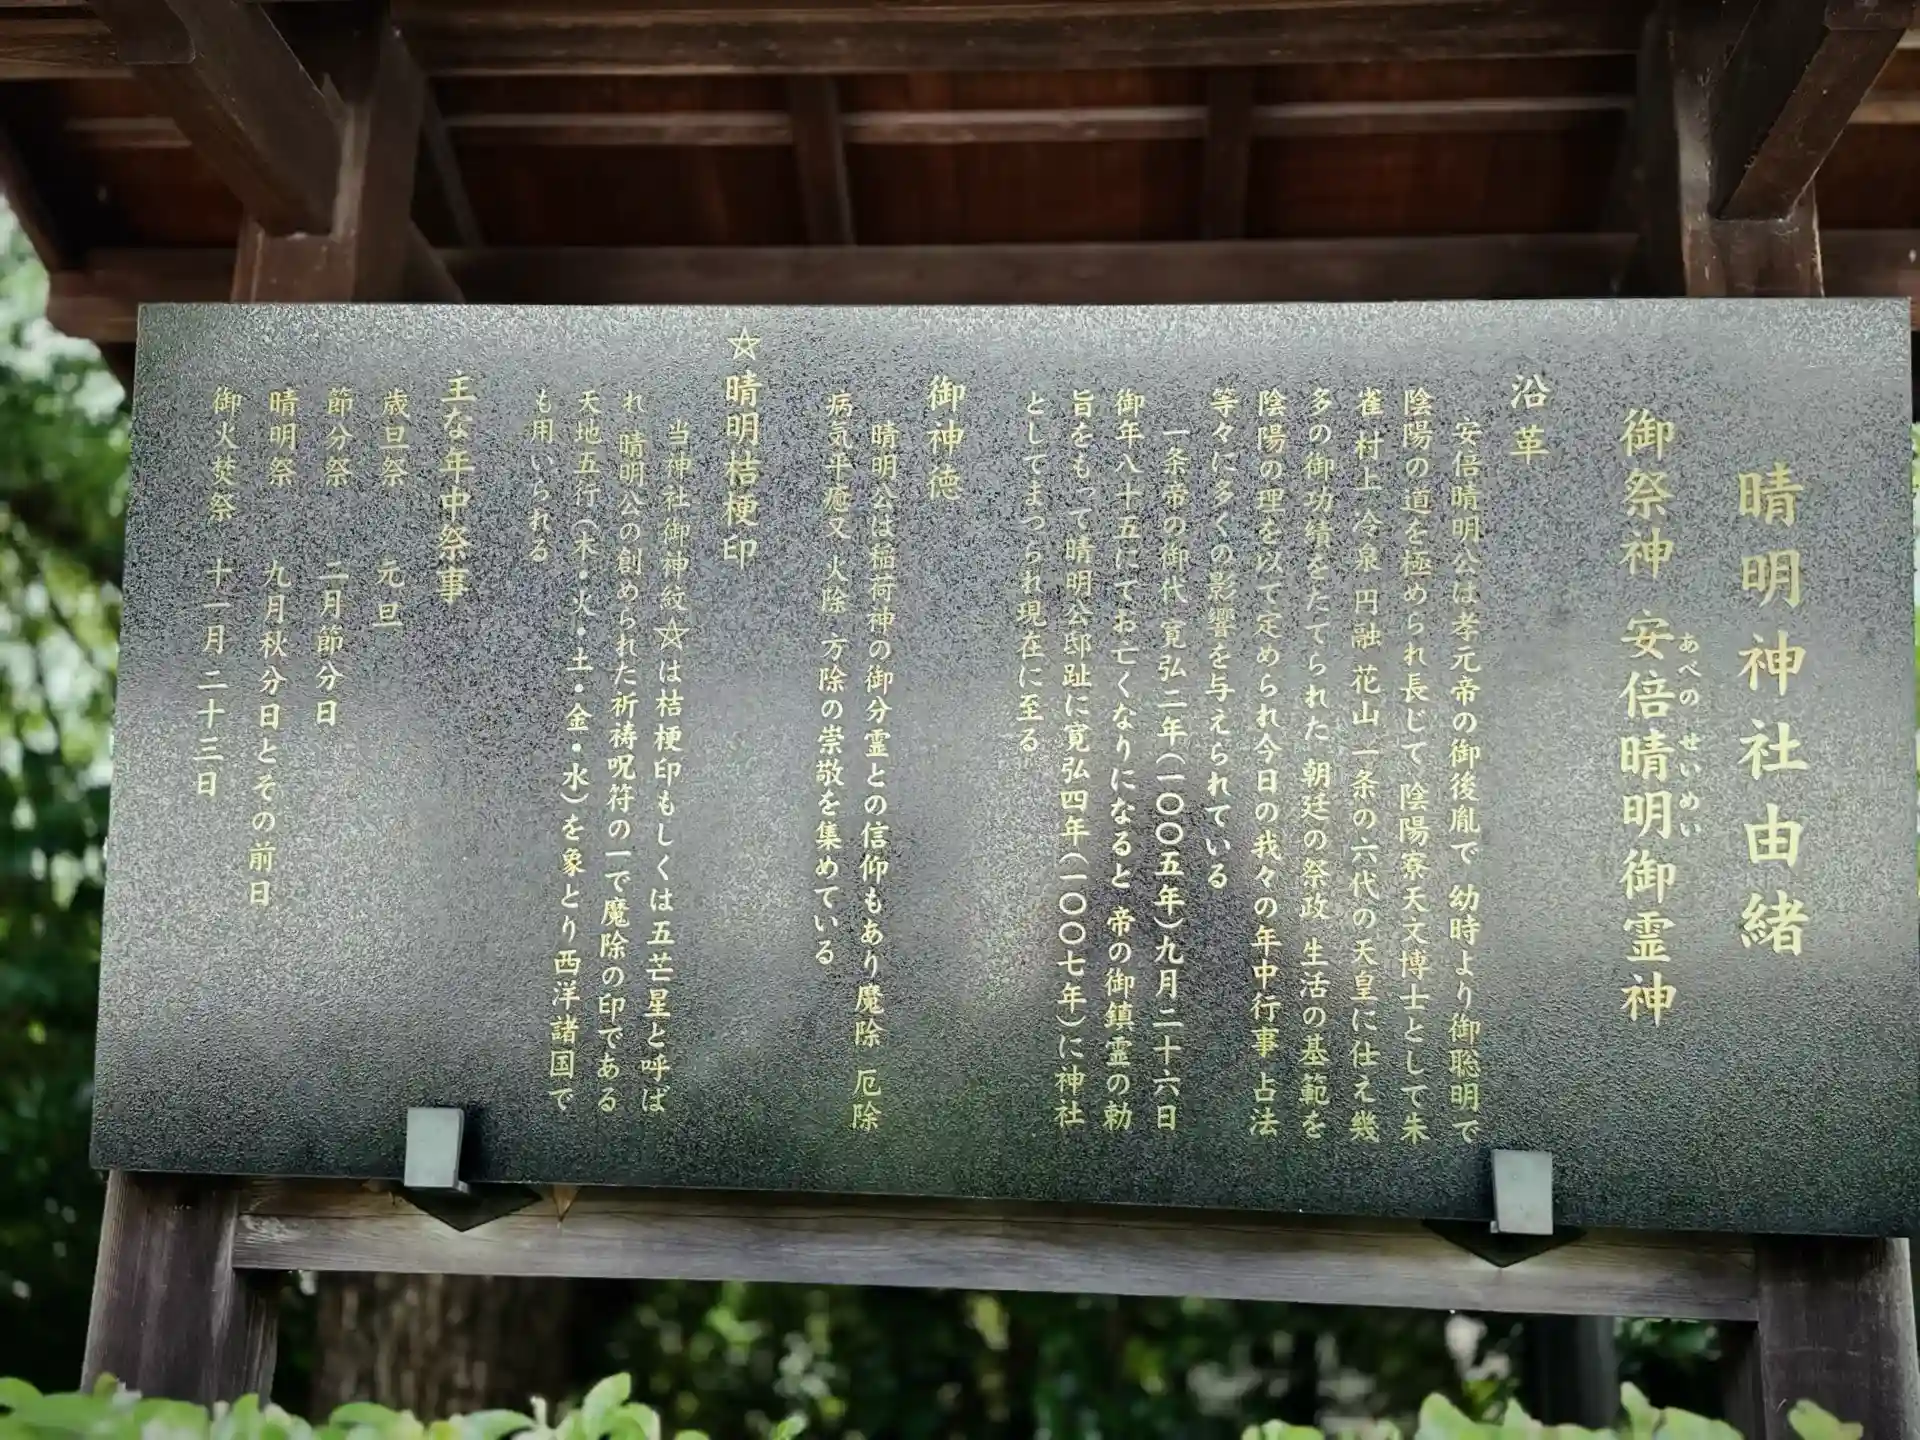 晴明神社由緒
御祭神 安倍晴明御霊神
あべの せいめい
沿革
安倍晴明公は孝元帝の御後胤で 幼時より御聡明で
陰陽の道を極められ長じて陰陽寮天文博士として朱
雀 村上 冷泉 円融 花山 一条の六代の天皇に仕え幾
多の御功績をたてられた 朝廷の祭政 生活の基範を
陰陽の理を以て定められ今日の我々の年中行事 占法
等々に多くの影響を与えられている
一条帝の御代 寛弘二年(一〇〇五年)九月二十六日
御年八十五にてお亡くなりになると 帝の御鎮霊の勅
旨をもって晴明公邸趾に寛弘四年(一〇〇七年)に神社
としてまつられ現在に至る
御神徳
晴明公は稲荷神の御分霊との信仰もあり魔除 厄除
病気平癒又 火除 方除の崇敬を集めている
☆晴明桔梗印
当神社御神紋☆は桔梗印もしくは五芒星と呼ば
れ 晴明公の創められた祈祷呪符の一で魔除の印である
天地五行(木・火・土・金・水)を象とり西洋諸国で
も用いられる
主な年中祭事
歳旦祭 元旦
節分祭 二月節分日
晴明祭 九月秋分日とその前日
御火焚祭 十一月二十三日